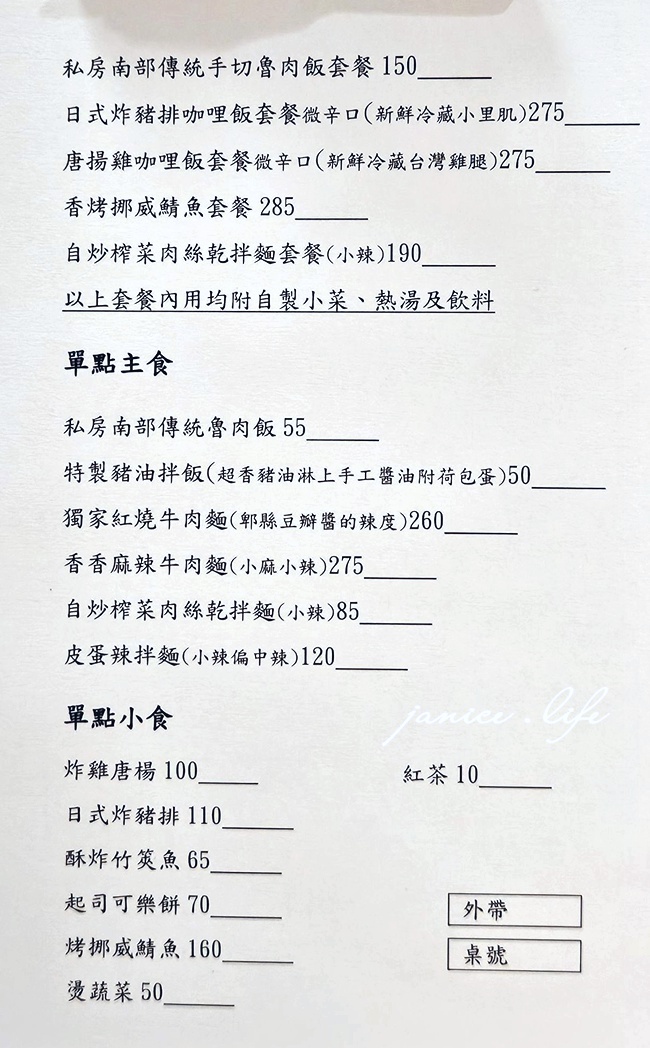 私房南部傳統手切魯肉飯套餐 150______
日式炸豬排咖哩飯套餐微辛口(新鮮冷藏小里肌)275______
唐揚雞咖哩飯套餐微辛口(新鮮冷藏台灣雞腿)275______
香烤挪威鯖魚套餐 285______
自炒榨菜肉絲乾拌麵套餐(小辣)190______
以上套餐內用均附自製小菜、熱湯及飲料
單點主食
私房南部傳統魯肉飯 55______
特製豬油拌飯(超香豬油淋上手工醬油附荷包蛋)50______
獨家紅燒牛肉麵(郫縣豆瓣醬的辣度)260______
香香麻辣牛肉麵(小麻小辣)275______
自炒榨菜肉絲乾拌麵(小辣)85______
皮蛋辣拌麵(小辣偏中辣)120______
janice.life
單點小食
炸雞唐楊 100_____
紅茶 10______
日式炸豬排 110______
酥炸竹筴魚 65______
起司可樂餅 70______
外帶
烤挪威鯖魚 160______
桌號
燙蔬菜 50______